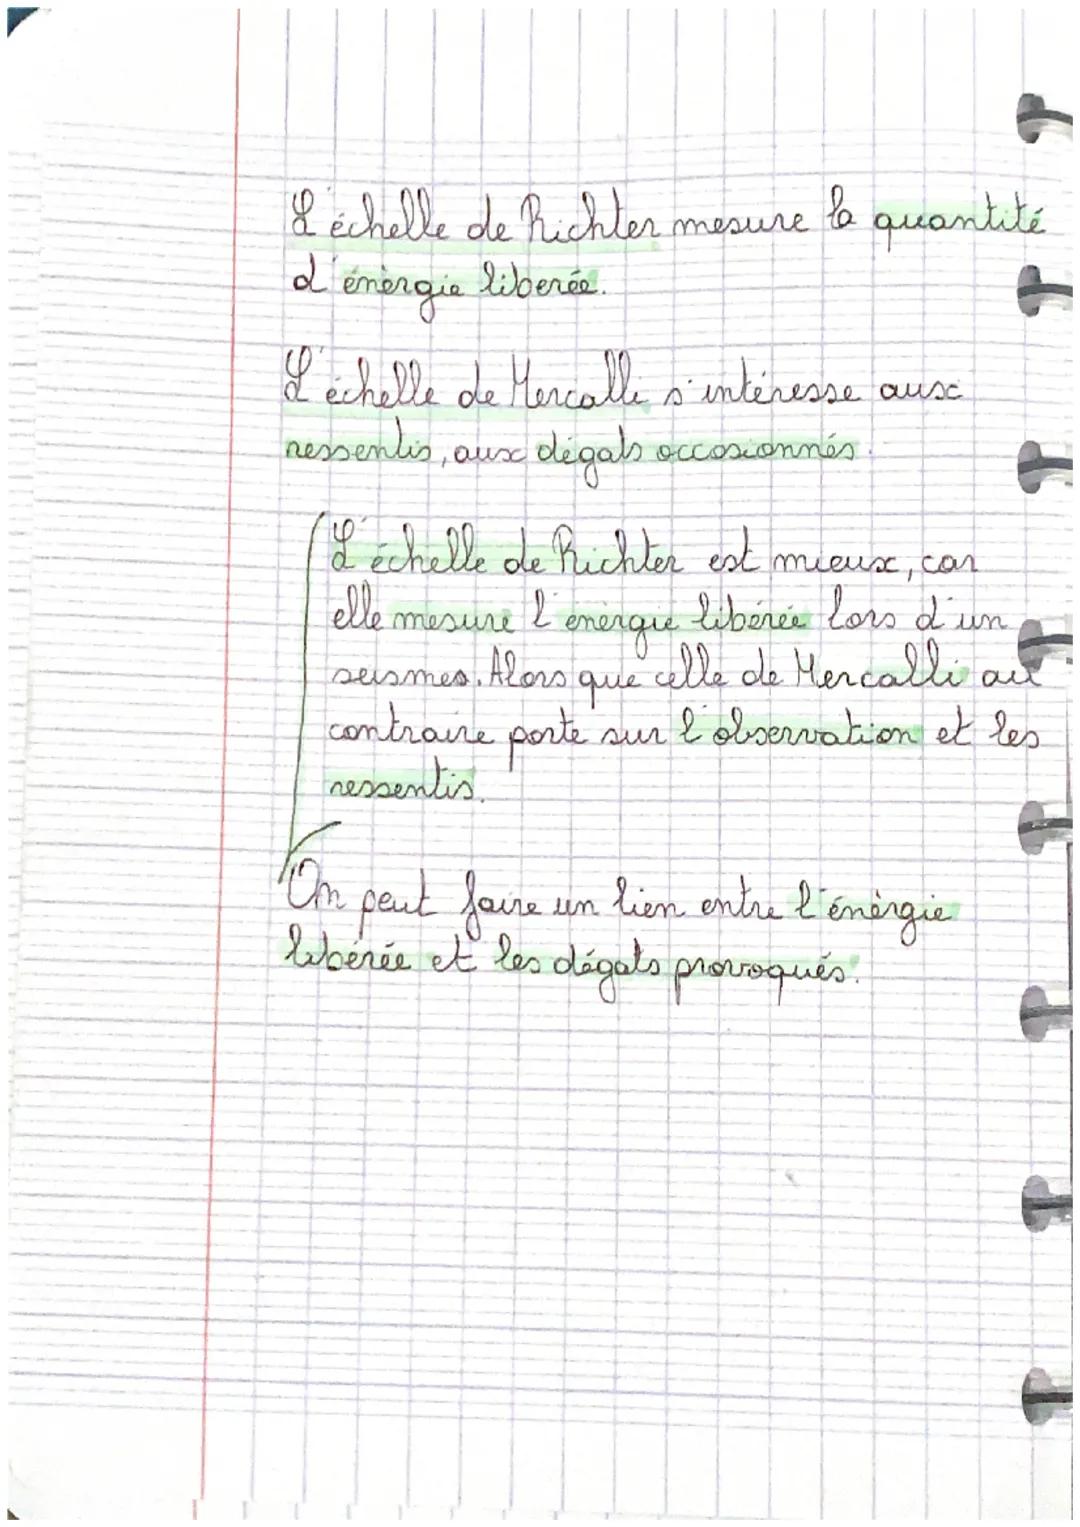 L'échelle de Richter mesure la quantité
d'énèrgie liberée.
L'échelle de Mercalli s'intéresse aux
ressentis, aux dégats occasionnés.
L'échelle de Richter est mieux, car
elle mesure l'énérgie libérée lors d'un
seismes. Alors que celle de Mercalli au
contraire porte sur l'observation et les
ressentis.
On peut faire un lien entre l'énèrgie
libérée et les dégats provoqués.